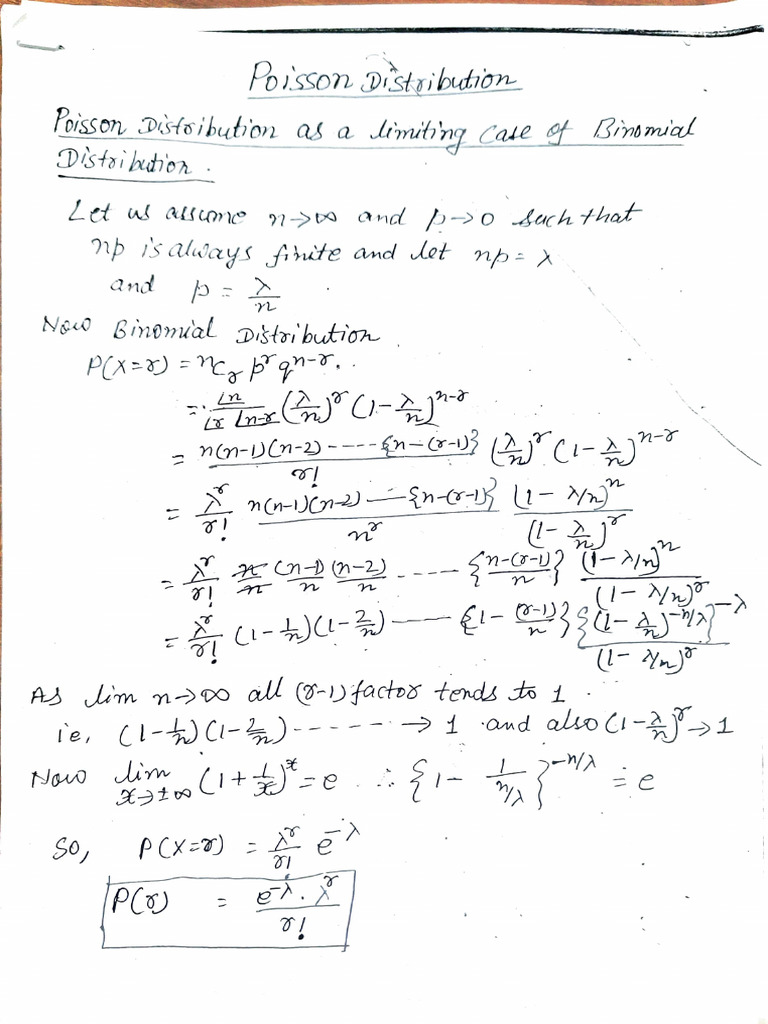 Poisson Distribution
Poisson Distribution as a limiting case of Binomial
Distribution.
Let us assume n→∞ and p→0 such that
np is always finite and let np = λ
and p = λ/n
Now Binomial Distribution
P(X=r) = nCr p^r q^(n-r).
= ∟n / (∟r ∟n-r) (λ/n)^r (1-λ/n)^(n-r)
= n(n-1)(n-2)----{n-(r-1)} / r! (λ/n)^r (1-λ/n)^(n-r)
= λ^r/r! n(n-1)(n-2)---{n-(r-1)} / n^r (1-λ/n)^n / (1-λ/n)^r
= λ^r/r! n/n (n-1)/n (n-2)/n ----- {n-(r-1)/n} (1-λ/n)^n / (1-λ/n)^r
= λ^r/r! (1-1/n)(1-2/n)---- {1-(r-1)/n} {(1-λ/n)^(-n/λ)}^(-λ) / (1-λ/n)^r
As lim n→∞ all (r-1) factor tends to 1.
ie, (1-1/n)(1-2/n)------→ 1 and also (1-λ/n)^r → 1
Now lim x→±∞ (1+1/x)^x = e ∴ {1 - 1/(n/λ)}^(-n/λ) = e
So, P(X=r) = λ^r/r! e^(-λ)
P(r) = e^(-λ).λ^r / r!